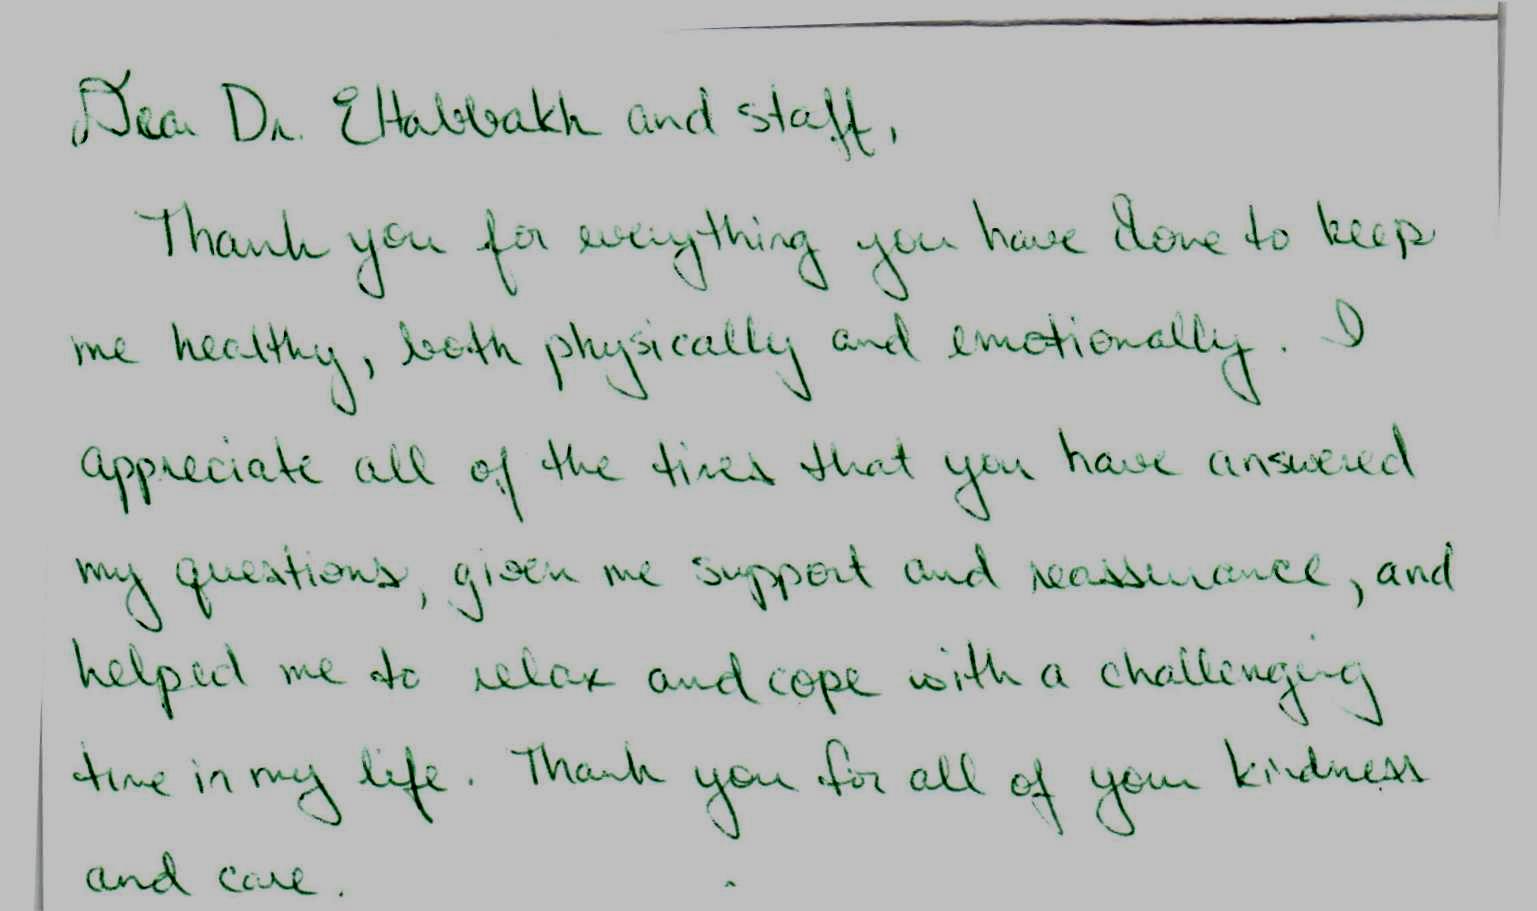 Dear Dr. ElHabbakh and staff,
Thank you for everything you have done to keep
me healthy, both physically and emotionally. I
appreciate all of the times that you have answered
my questions, given me support and reassurance, and
helped me to relax and cope with a challenging
time in my life. Thank you for all of your kindness
and care.